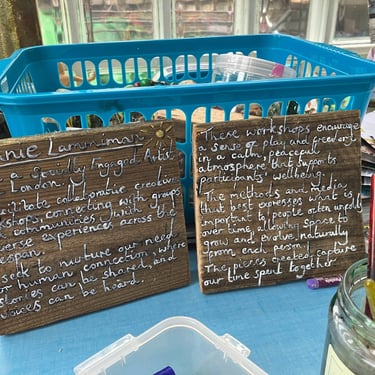 nie Larriman
a Socially Engaged Artist
London. I
facilitate collaborative creative
workshops, connecting with groups
communities, with
diverse experiences across the
lifespan.
seek to nurture our need
for human connection, where
stories can be shared, and
voices can be heard.
These workshops encourage
a sense of play and freedom,
in a calm, peaceful
atmosphere that supports
participants' wellbeing.
The methods and medium
that best expresses what is
important to people often unfolds
over time, allowing space to
grow and evolve naturally
from each person.
The pieces created capture
our time spent together